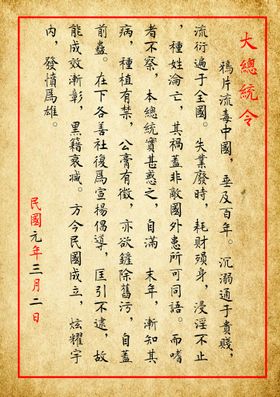 大總統令
鴉片流毒中國，垂及百年。沉溺通于貴賤，
流衍遍于全國。失業廢時，耗財殞身，浸淫不止
，種姓淪亡，其禍蓋非敵國外患所可同語。而嗜
者不察，本總統實甚惑之，自滿　末年，漸知其
病，種植有禁，公膏有徵，亦欲鏟除舊污，自蓋
前蠱。在下各善社復爲宣楊倡導，匡引不逮，故
能成效漸彰，黑籍衰滅。方今民國成立，炫耀宇
内，發憤爲雄。
民國元年三月二日